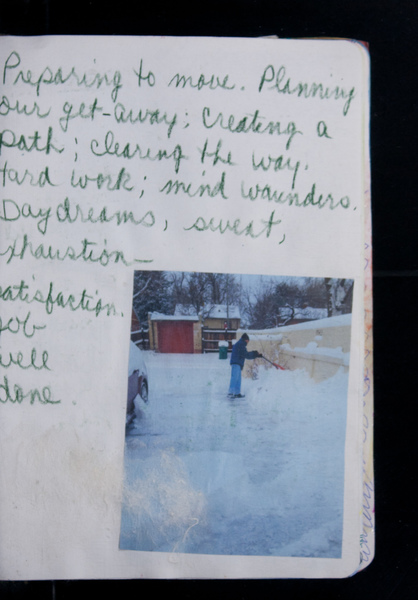 Preparing to move. Planning
our get-away; creating a
path; clearing the way.
Hard work; mind waunders.
Daydreams, sweat,
exhaustion—
satisfaction.
job
well
done.